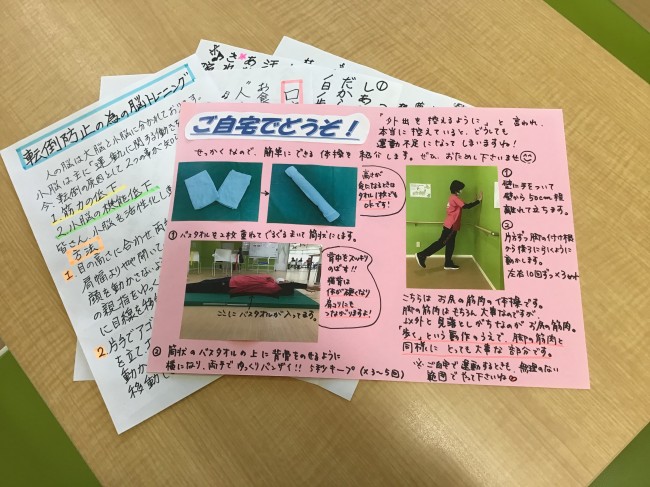 ご自宅でどうぞ！
せっかくなので、簡単にできる体操を紹介します。ぜひ、おためし下さいませ
「外出を控えるように…」と言われ、
本当に控えていると、どうしても
運動不足になってしまいますね!
高さが
気になるときは
タオル1枚でも
OKです!
① バスタオルを2枚重ねてぐるぐるまいて筒状にします。
背中をスッキリ
のばす!!
猫背は
体が硬くなり
肩コリにも
つながりますよ!
ここにバスタオルが入ってます。
② 筒状のバスタオルの上に背骨をのせるように
横になり、両手でゆっくりバンザイ!! 5秒キープ(×3〜5回)
①
壁に手をついて
壁から50cm程
離れて立ちます。
②
片方ずつ脚の付け根
から後ろに引くように
動かします。
左右10回ずつ×3set
こちらはお尻の筋肉の体操です。
脚の筋肉はもちろん大事なのですが、
以外と見落としがちなのがお尻の筋肉。
「歩く」という動作のうえで、脚の筋肉と
同様にとっても大事な部分です。
※ご自宅で運動するときも、無理のない
範囲でやって下さいね
転倒防止の為の脳トレーニング
人の脳は大脳と小脳に分かれており
小脳は主に運動に関する働きを
今、転倒の原因として2つの事が
1.筋力の低下
2.小脳の機能低下
皆さん、小脳を活性化しま
方法
1 目の高さに合わせ両
肩幅より
顔を動かさないよ
の親指をゆっ
に目線を移
2 片手でアゴ
を立て
動か
移動